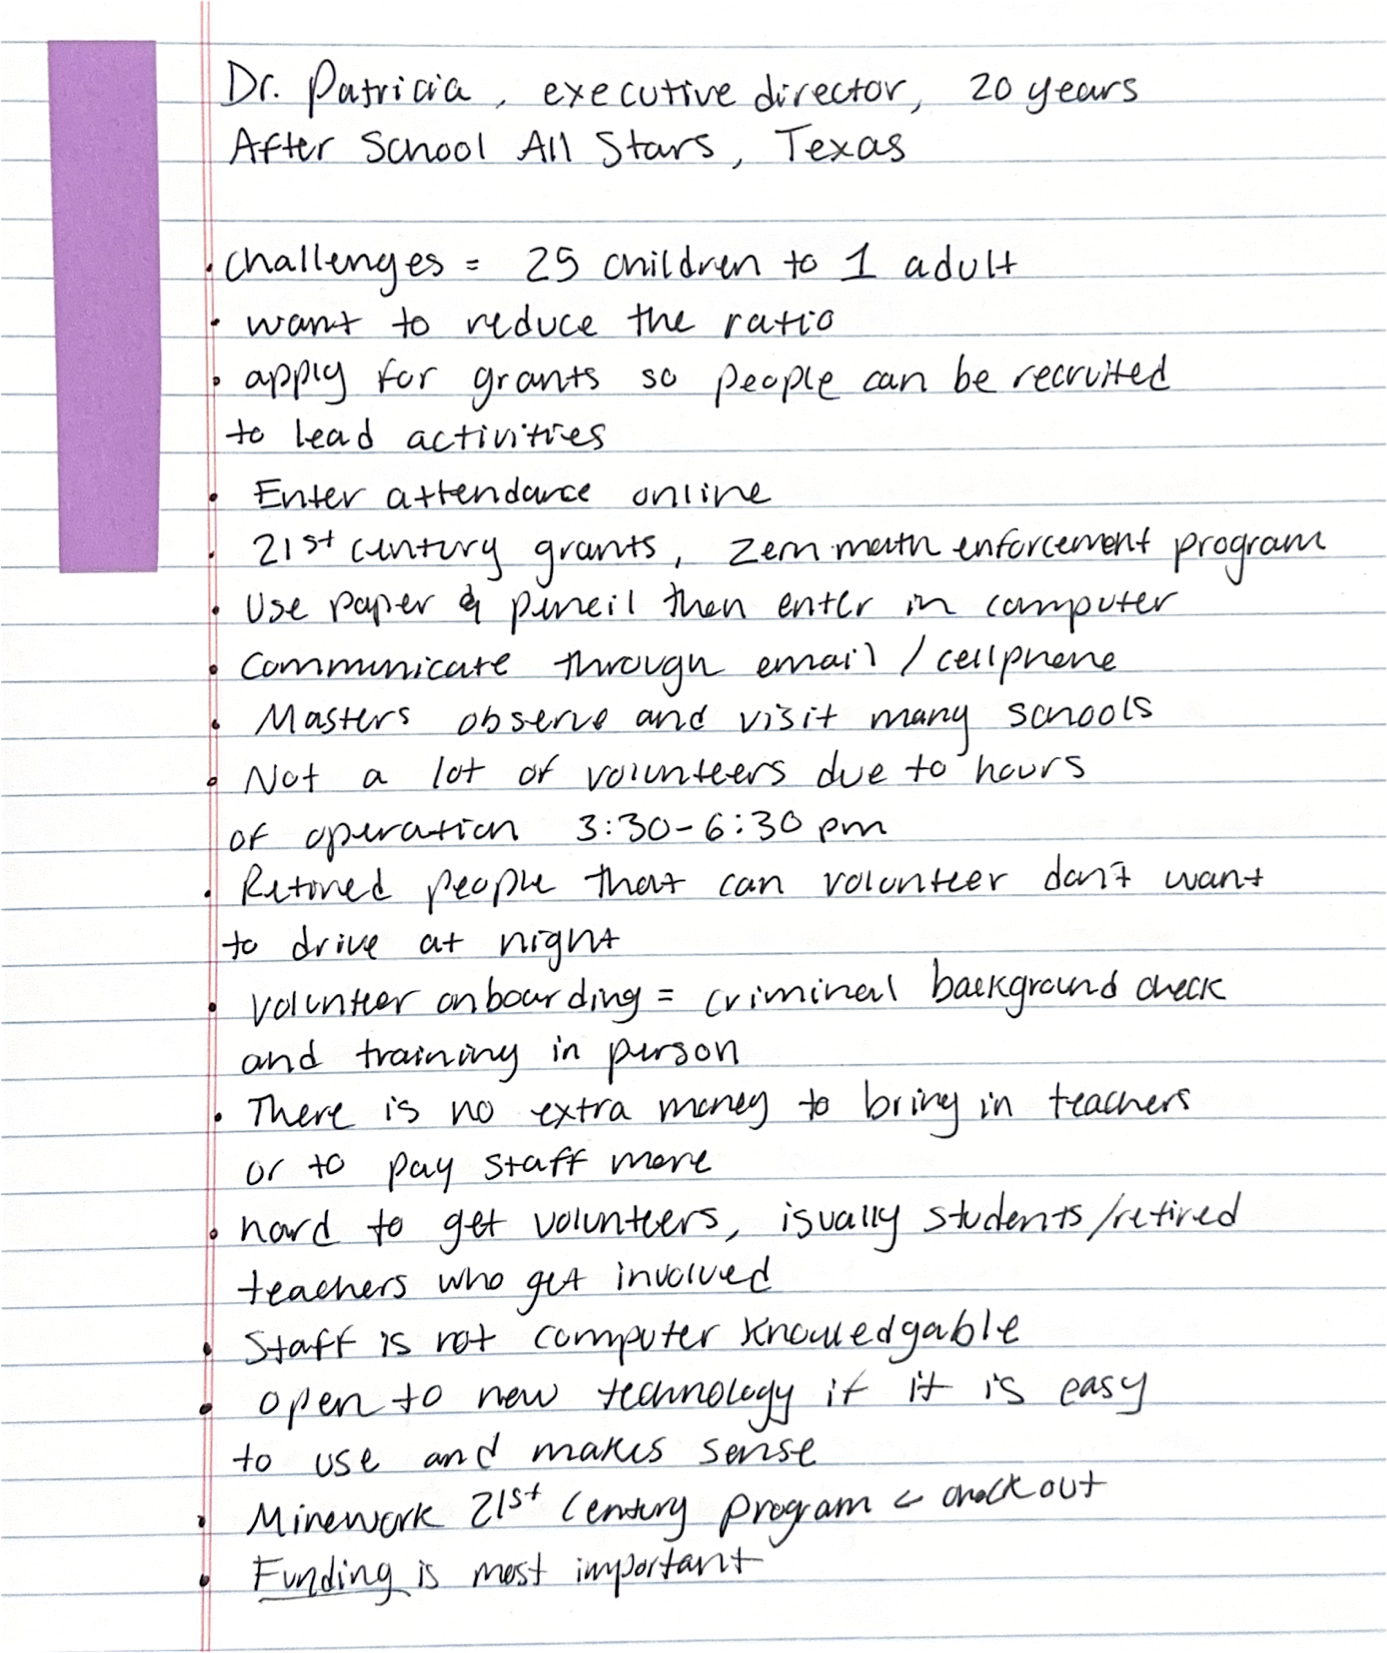 Dr. Patricia, executive director, 20 years
After School All Stars, Texas
• challenges = 25 children to 1 adult
• want to reduce the ratio
• apply for grants so people can be recruited
to lead activities
• Enter attendance online
• 21st century grants, zern math enforcement program
• Use paper & pencil then enter in computer
• Communicate through email / cellphone
• Masters observe and visit many schools
• Not a lot of volunteers due to hours
of operation 3:30-6:30 pm
• Retired people that can volunteer don't want
to drive at night
• volunteer onboarding = criminal background check
and training in person
• There is no extra money to bring in teachers
or to pay staff more
• hard to get volunteers, isually students/retired
teachers who get involved
• Staff is not computer knowledgable
• open to new technology if it is easy
to use and makes sense
• Minework 21st Century program < check out
• Funding is most important